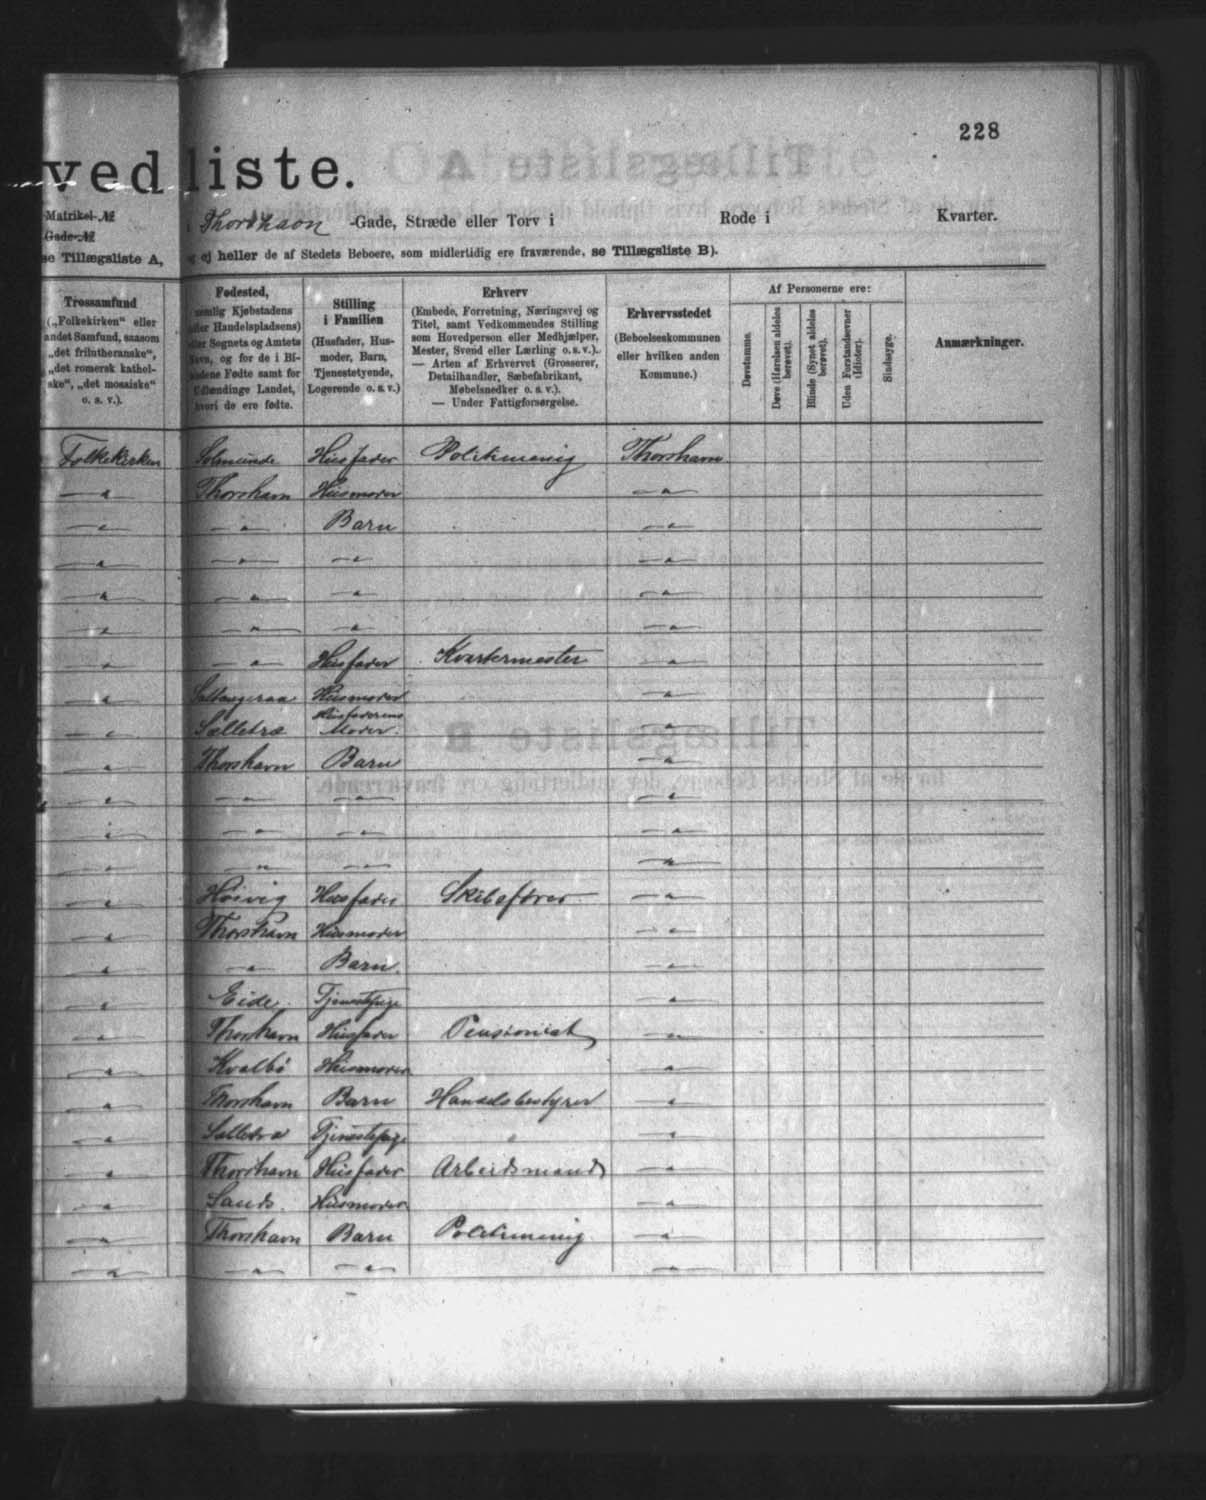 228
vedliste.
Matrikel-№
Thorshavn -Gade, Stræde eller Torv i Rode i Kvarter.
Gade-№
se Tillægsliste A, ej heller de af Stedets Beboere, som midlertidig ere fraværende, se Tillægsliste B).
Trossamfund
(„Folkekirken" eller
andet Samfund, saasom
„det frilutheranske",
„det romersk kathol-
ske", „det mosaiske"
o. s. v.).
Fødested,
nemlig Kjøbstadens
eller Handelspladsens)
eller Sognets og Amtets
Navn, og for de i Bi-
landene Fødte samt for
Udlændinge Landet,
hvori de ere fødte.
Stilling
i Familien
(Husfader, Hus-
moder, Barn,
Tjenestetyende,
Logerende o. s. v.)
Erhverv
(Embede, Forretning, Næringsvej og
Titel, samt Vedkommendes Stilling
som Hovedperson eller Medhjælper,
Mester, Svend eller Lærling o. s. v.).
— Arten af Erhvervet (Grosserer,
Detailhandler, Sæbefabrikant,
Møbelsnedker o. s. v.).
— Under Fattigforsørgelse.
Erhvervsstedet
(Beboelseskommunen
eller hvilken anden
Kommune.)
Af Personerne ere:
Døvstumme.
Døve (Hørelsen aldeles
berøvet).
Blinde (Synet aldeles
berøvet).
Uden Forstandsevner
(Idioter).
Sindssyge.
Anmærkninger.
Folkekirken Solmunde Husfader Politimenig Thorshavn
—"— Thorshavn Husmoder —"—
—"— —"— Barn —"—
—"— —"— —"— —"—
—"— —"— —"— —"—
—"— —"— —"— —"—
—"— —"— Husfader Kvartermester —"—
—"— Saltangeraa Husmoder —"—
—"— Selletræ Husfaderens Moder. —"—
—"— Thorshavn Barn —"—
—"— —"— —"— —"—
—"— —"— —"— —"—
—"— —"— —"— —"—
—"— Hoivig Husfader Skibsfører —"—
—"— Thorshavn Husmoder —"—
—"— —"— Barn —"—
—"— Eide Tjenestepige —"—
—"— Thorshavn Husfader Pensionist —"—
—"— Kvalbø Husmoder —"—
—"— Thorshavn Barn Handelsbestyrer —"—
—"— Selletræ Tjenestepige —"—
—"— Thorshavn Husfader Arbeidsmand —"—
—"— Sands. Husmoder —"—
—"— Thorshavn Barn Politimenig —"—
—"— —"— —"— —"—